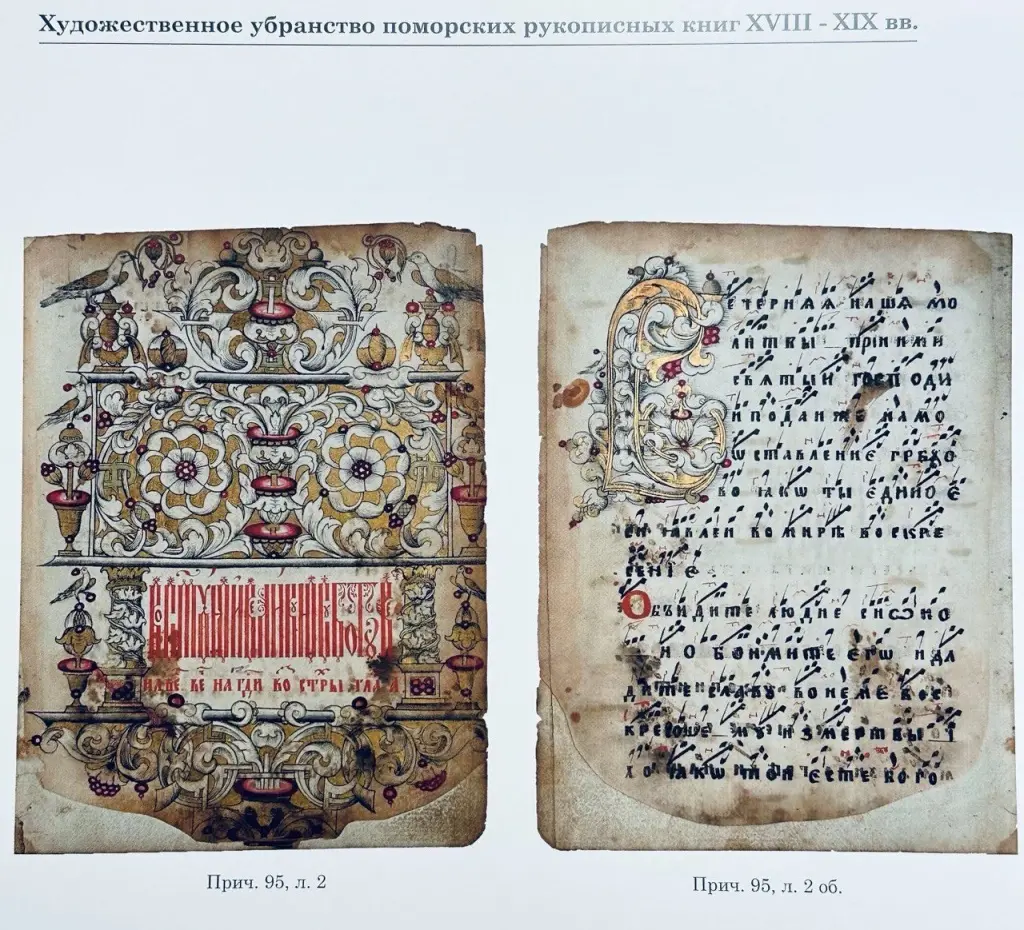 Художественное убранство поморских рукописных книг XVIII - XIX вв.
на гди во стры гла а
етерняя наша мо
литвы приими
святыи господи
и подаиже намо
ѡставление грѣхо
во ꙗкѡ ты едино є
си ꙗвлеи вомирѣ воскре
сеніє
Обыдите людие сиѡно
и дл
дите славу вонеме вос
из мертвы і
ꙗкѡ тои єсте бого
Прич. 95, л. 2
Прич. 95, л. 2 об.